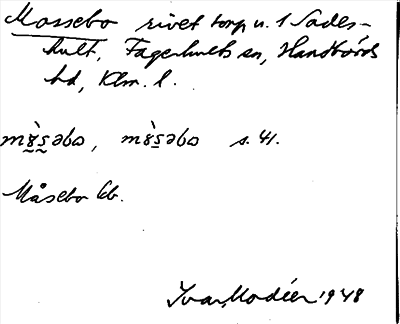 Mossebo rivet torp u. 1 Sades-
hult, Fagerhults sn, Handbörds
hd, Klm. l.
mɤ̀s̬əbo, mɤ̀s̬əbo s. 41.
Måsebo kb.
Ivar Modéer 1948